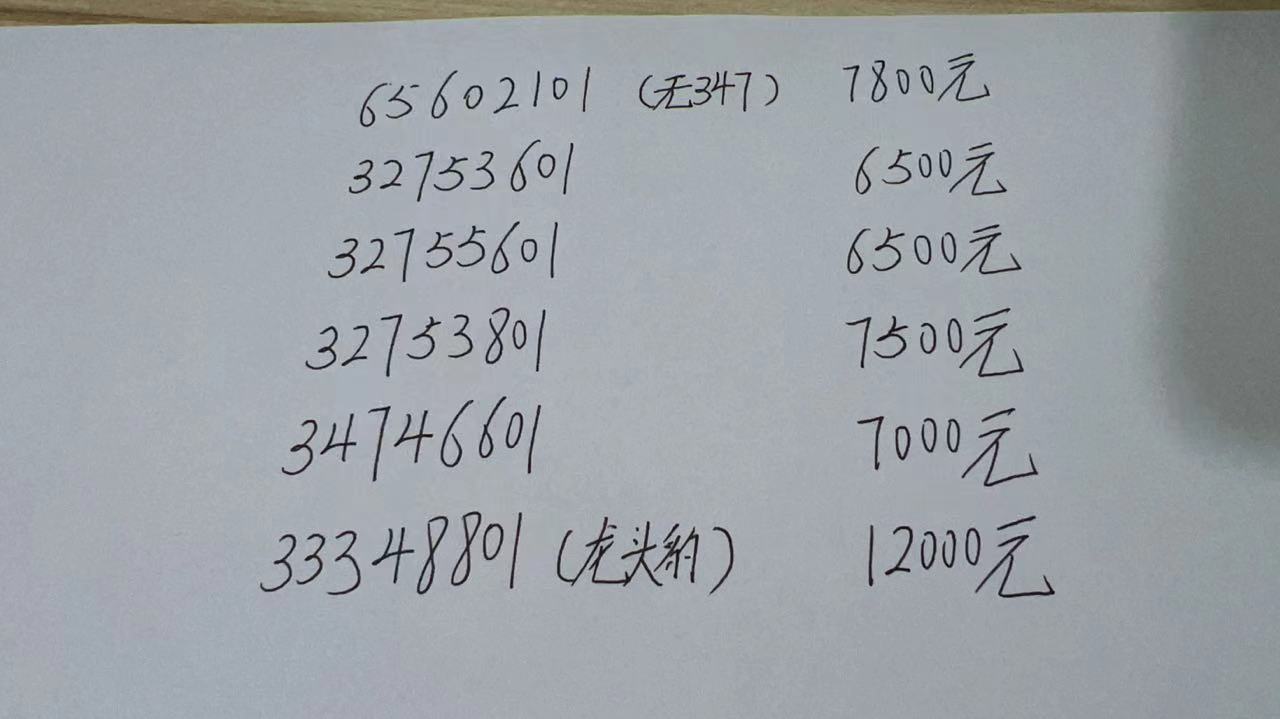 65602101 (无347) 7800元
32753601 6500元
32755601 6500元
32753801 7500元
34746601 7000元
33348801 (虎头豹) 12000元